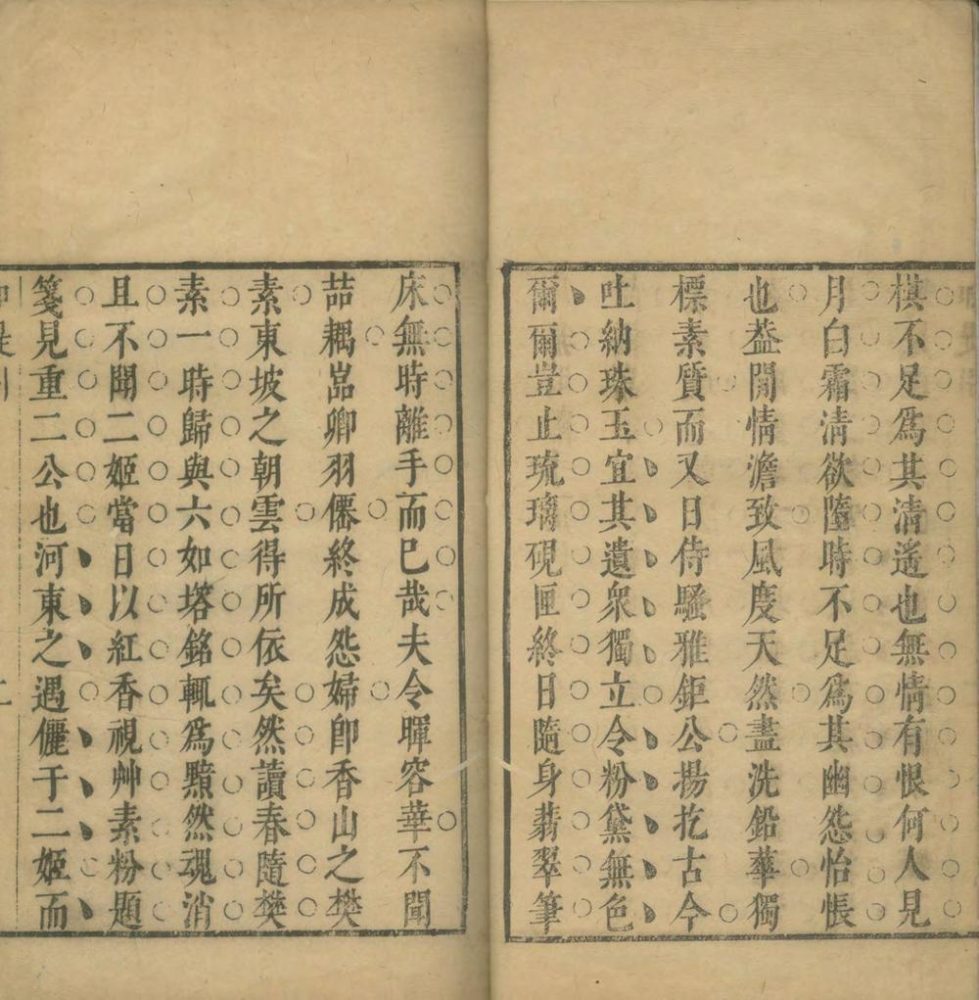 棋不足爲其清遙也無情有恨何人見
月白霜清欲墮時不足爲其幽怨怡悵
也葢閒情澹致風度天然盡洗鉛華獨
標素質而又日侍騷雅鉅公揚扢古今
吐納珠玉宜其遺衆獨立令粉黛無色
爾爾豈止琉璃硯匣終日隨身翡翠筆
床無時離手而巳哉夫令暉容華不聞
喆耦嵓卿羽僊終成怨婦卽香山之樊
素東坡之朝雲得所依矣然讀春隨樊
素一時歸與六如塔銘輒爲黯然魂消
且不聞二姬當日以紅香視艸素粉題
箋見重二公也河東之遇儷于二姬而